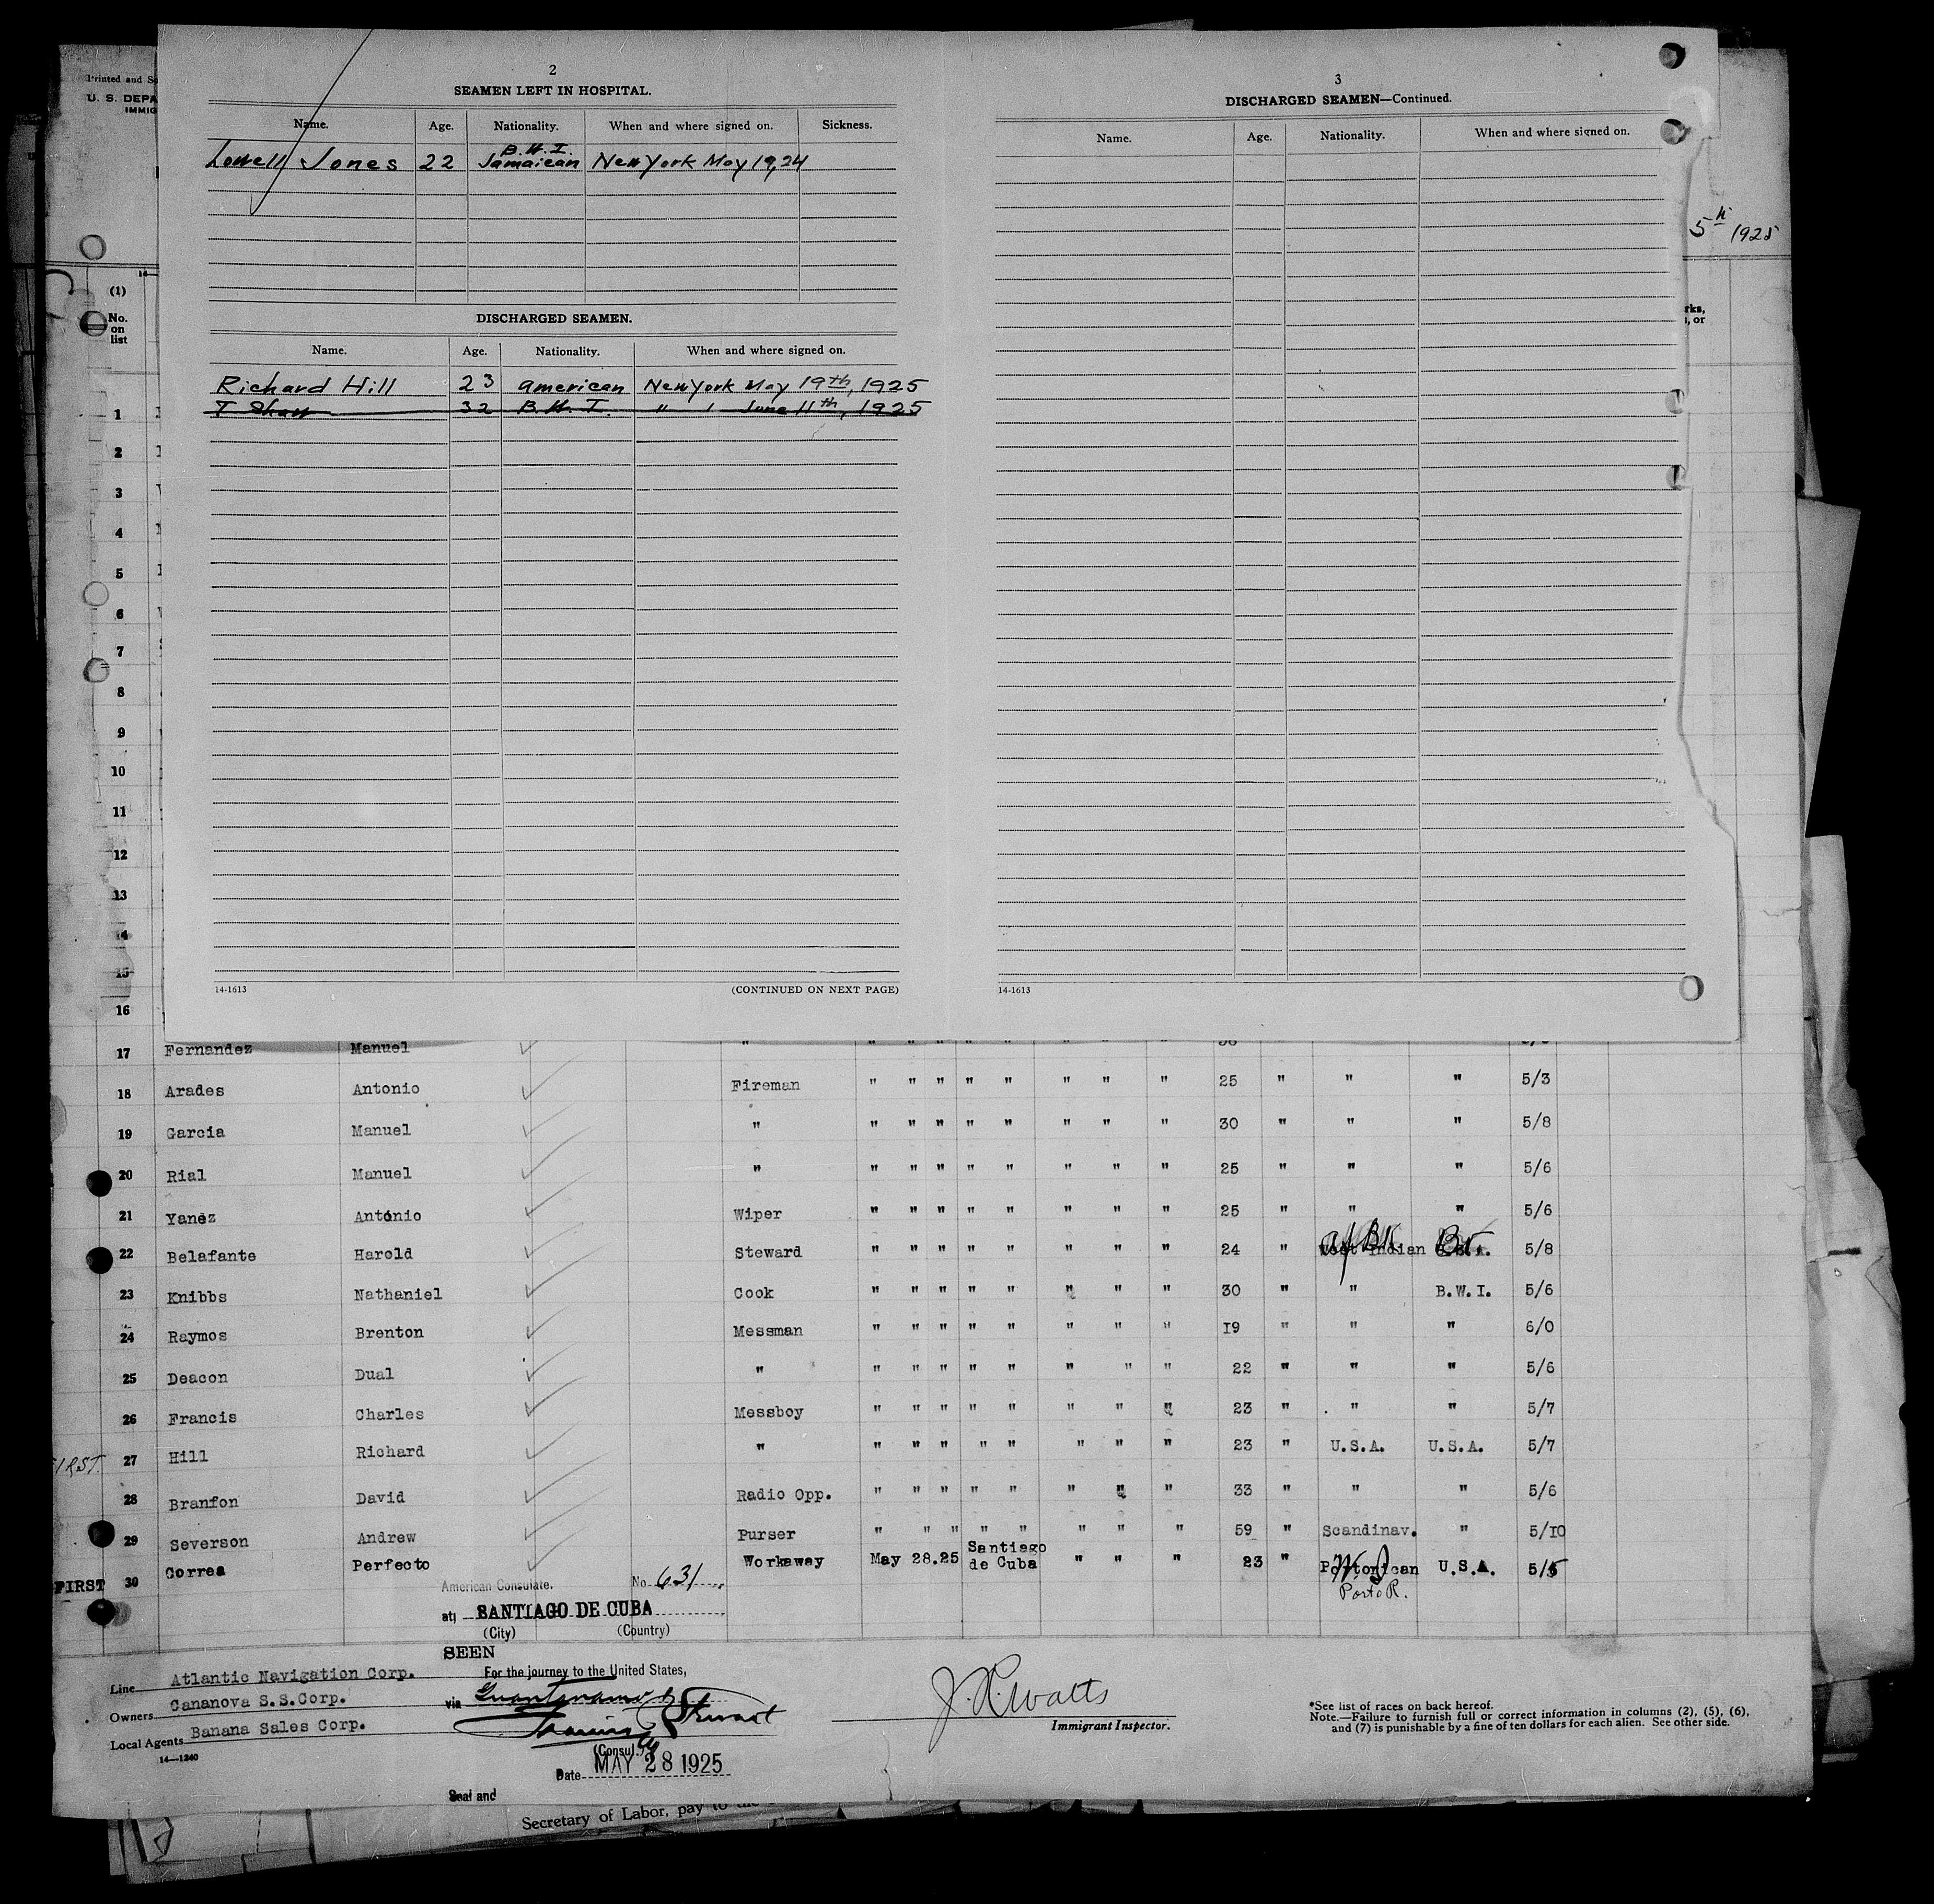 Printed and
U. S. DEPA
IMMIG
5th 1925
14—
(1)
No.
on
list
rks,
, or
2
SEAMEN LEFT IN HOSPITAL.
Name. Age. Nationality. When and where signed on. Sickness.
B.W.I.
Lowell Jones 22 Jamaican New York May 19, 24
DISCHARGED SEAMEN.
Name. Age. Nationality. When and where signed on.
Richard Hill 23 American New York May 19th, 1925
T Shaw 32 B.W.I. " " June 11th, 1925
14-1613 (CONTINUED ON NEXT PAGE)
3
DISCHARGED SEAMEN—Continued.
Name. Age. Nationality. When and where signed on.
14-1613
1
2
3
4
5
6
7
8
9
10
11
12
13
14
15
16
17 Fernandez Manuel " " " " " " " "
18 Arades Antonio Fireman " " " " " " " " 25 " " " 5/3
19 Garcia Manuel " " " " " " " " " 30 " " " 5/8
20 Rial Manuel " " " " " " " " " 25 " " " 5/6
21 Yanez Antonio Wiper " " " " " " " " 25 " " " 5/6
22 Belafante Harold Steward " " " " " " " " 24 " West Indian 5/8
23 Knibbs Nathaniel Cook " " " " " " " " 30 " " B.W.I. 5/6
24 Raymos Brenton Messman " " " " " " " " 19 " " " 6/0
25 Deacon Dual " " " " " " " " " 22 " " " 5/6
26 Francis Charles Messboy " " " " " " " " 23 " " " 5/7
FIRST 27 Hill Richard " " " " " " " " " 23 " U.S.A. U.S.A. 5/7
28 Branfon David Radio Opp. " " " " " " " " 33 " " " 5/6
29 Severson Andrew Purser " " " " " " " " 59 " Scandinav. " 5/10
FIRST 30 Correa Perfecto Workaway May 28.25 Santiago de Cuba " " " 23 " Portorican U.S.A. 5/5
Porto R.
American Consulate. No. 631
at SANTIAGO DE CUBA
(City) (Country)
SEEN
For the journey to the United States,
via Guantanamo
Stewart
(Consul.)
Date MAY 28 1925
Seal and
Line Atlantic Navigation Corp.
Owners Cananova S.S.Corp.
Local Agents Banana Sales Corp.
14—1240
J. R. Watts
Immigrant Inspector.
*See list of races on back hereof.
Note.—Failure to furnish full or correct information in columns (2), (5), (6),
and (7) is punishable by a fine of ten dollars for each alien. See other side.
Secretary of Labor, pay to the